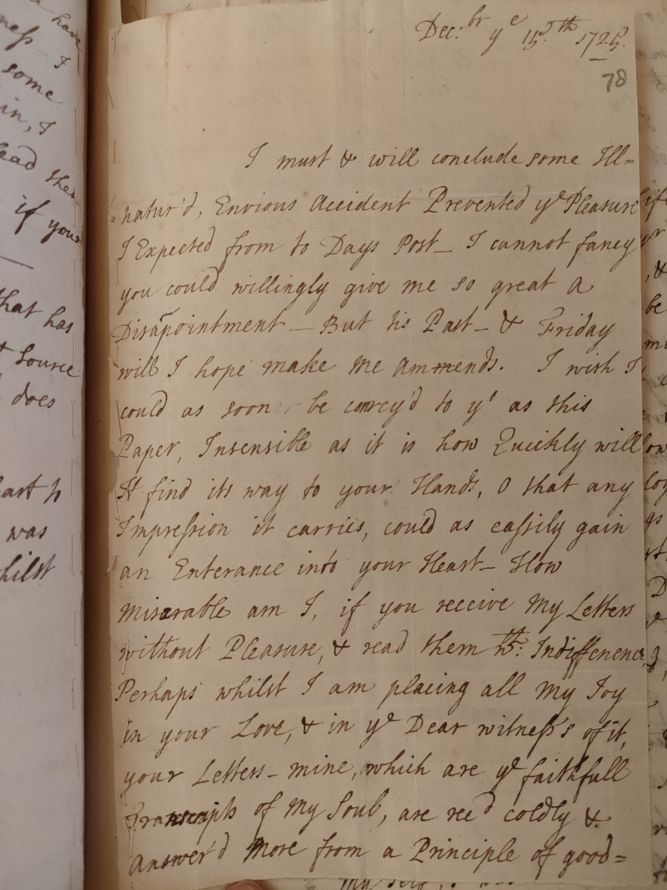 have
ness I
some
in, I
lead then
if your
that has
t source
does
eart to
was
hilst
Dec:br ye 15th 1725.
78
I must & will conclude some Ill=
natur'd, Envious Accident Prevented ye Pleasure
I Expected from to Days Post_ I cannot fancy
you could willingly give me so great a
Disapointment_ But tis Past_ & Friday
will I hope make me ammends. I wish I
could as soon be convey'd to yu as this
Paper, Insensible as it is how Quickly will
It find its way to your Hands, O that any
Impression it carries, could as eassily gain
an Enterance into your Heart_ How
Miserable am I, if you receive My Letters
without Pleasure, & read them wth: Indifference,
Perhaps whilst I am placing all My Joy
in your Love, & in ye Dear witness's of it,
your Letters_ mine, which are ye faithfull
Transcripts of My Soul, are rec'd coldly &
answer'd More from a Principle of good=